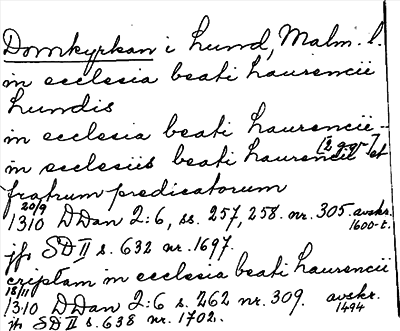 Domkyrkan i Lund, Malm. l.
in ecclesia beati Laurencii
Lundis
in ecclesia beati Laurencii -
in ecclesiis beati Laurencii et
fratrum predicatorum
20/9
1310 DDan 2:6, ss. 257, 258. nr. 305. avskr.
1600-t.
jfr SD II s. 632 nr. 1697.
criptam in ecclesia beati Laurencii
18/11
1310 DDan 2:6 s. 262 nr. 309. avskr.
1494
jfr SD II s. 638 nr. 1702.